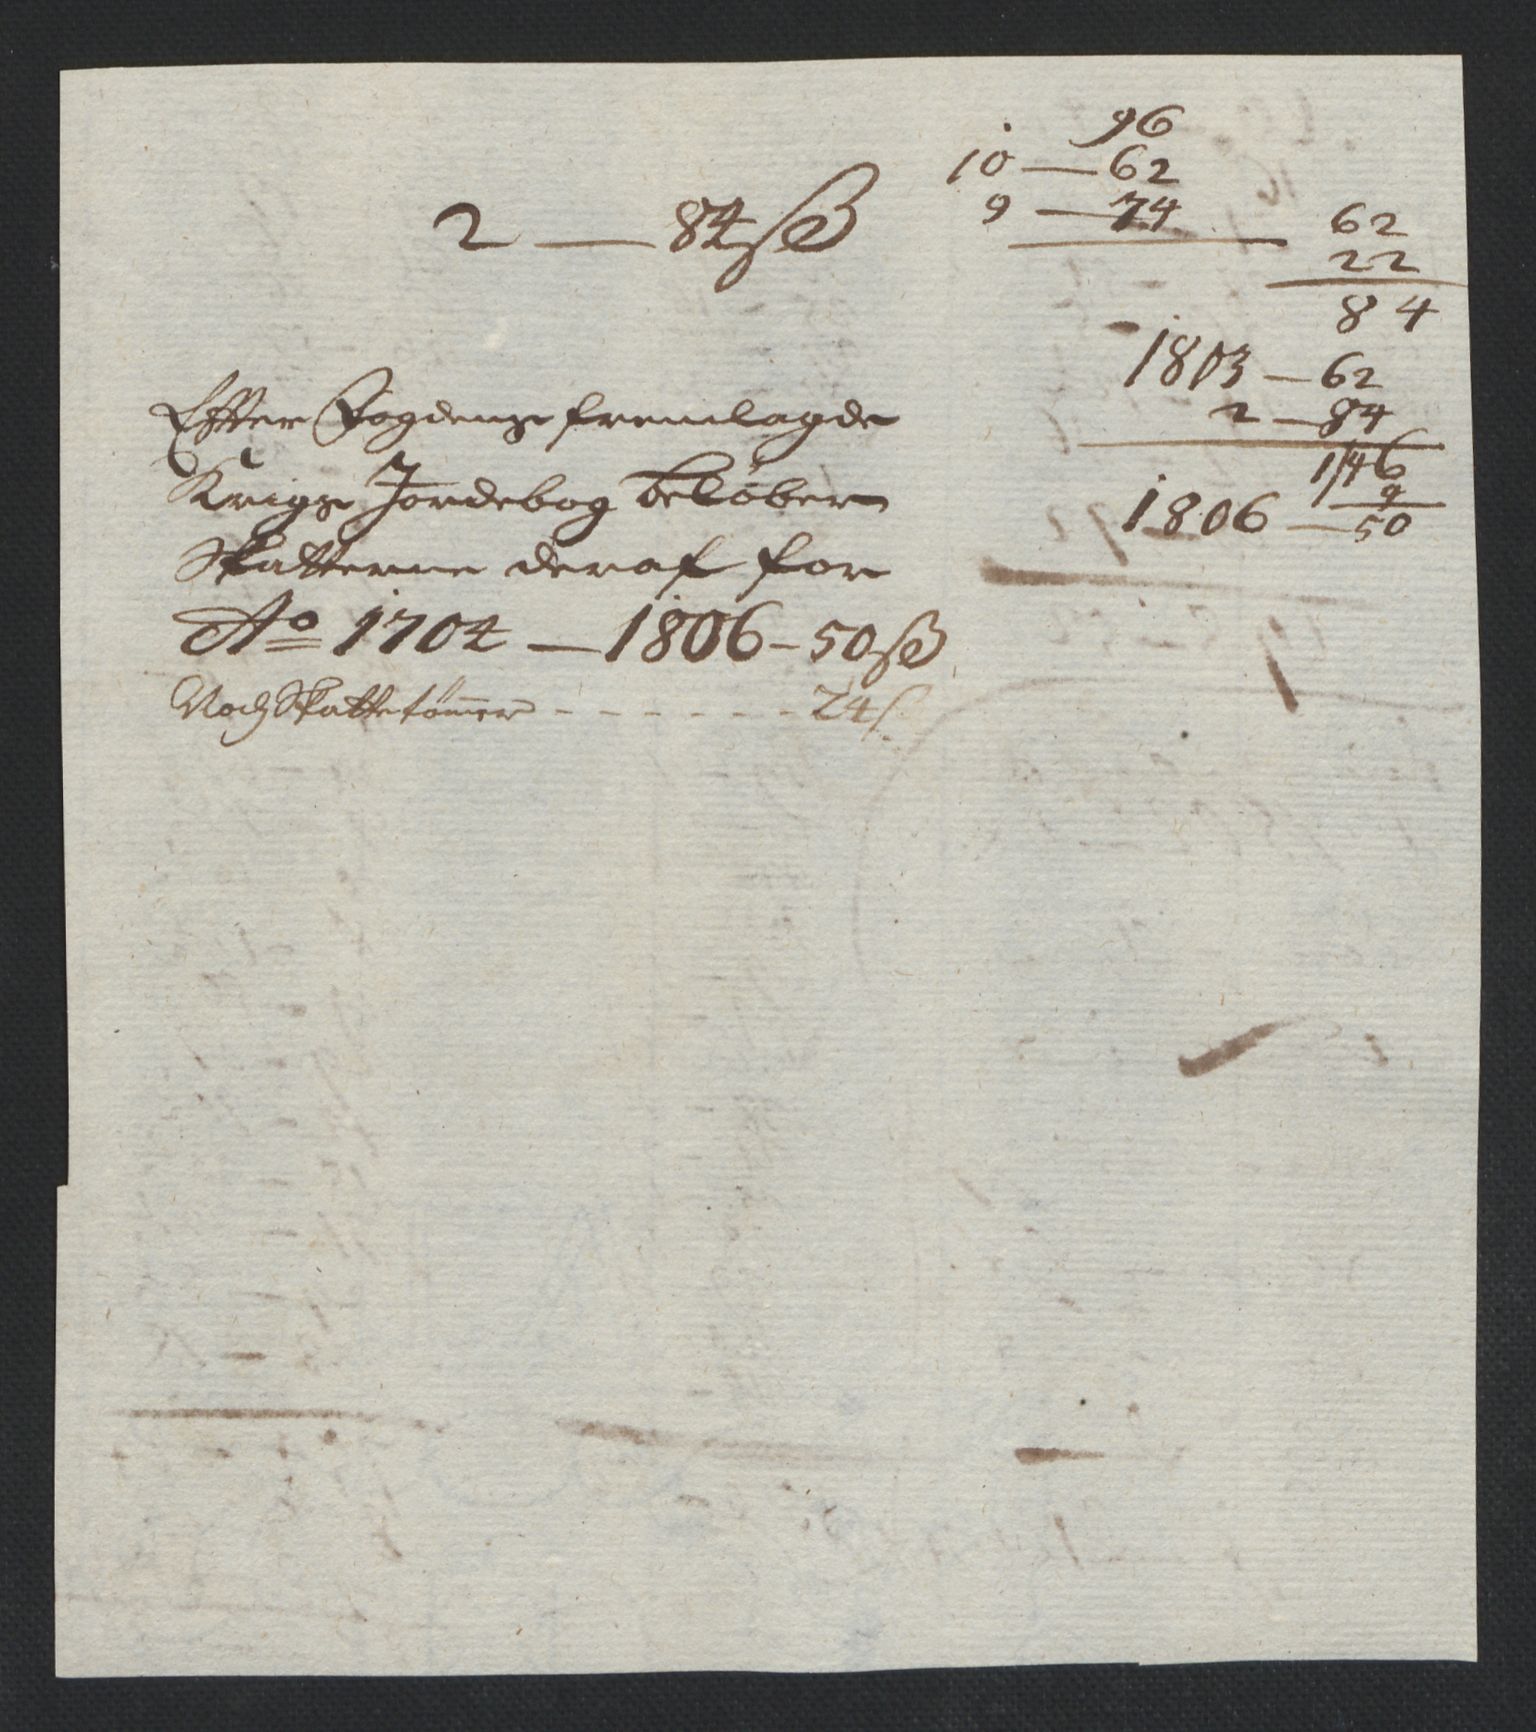 96
10 — 62
9 — 74
2 — 84 ß
62
22
84
1803 — 62
2 — 84
146
9
1806 — 50
Efter Fogdens fremlagde
Krigs Jordebog beløber
Skatterne deraf for
Ao 1704 — 1806 - 50 ß
Noch Skattetømer - - - - - - - 24 ß